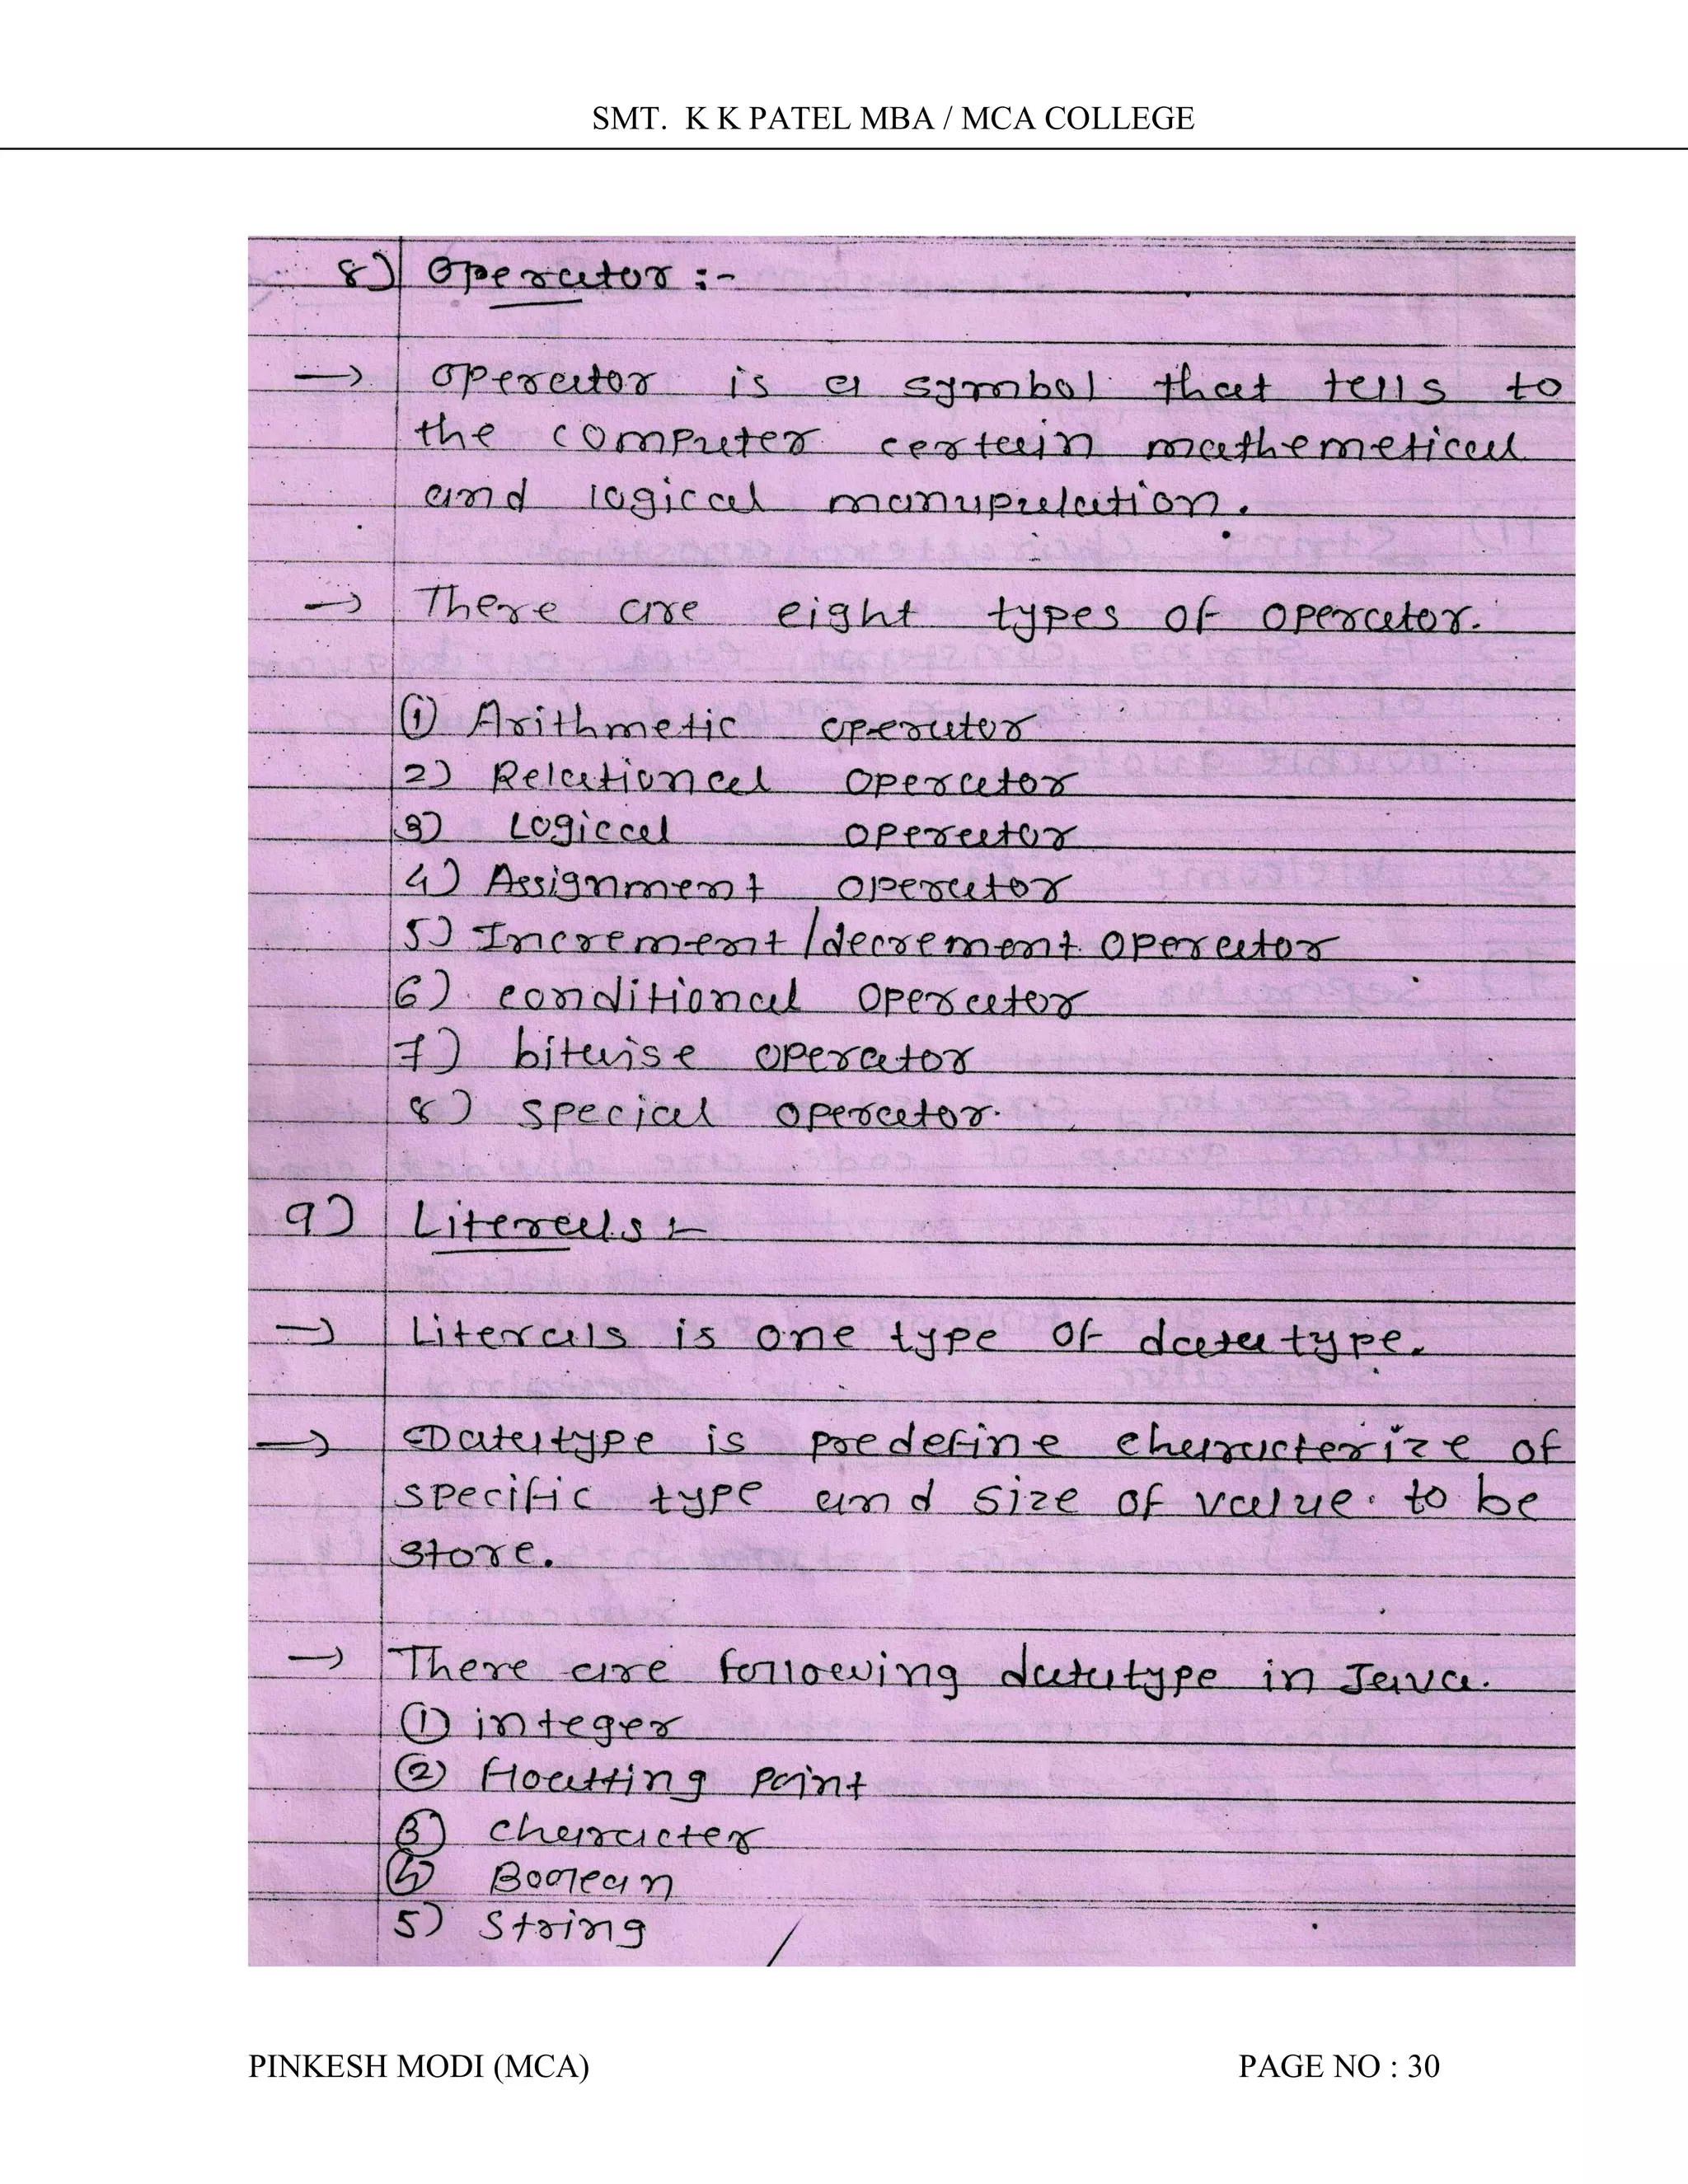 SMT. K K PATEL MBA / MCA COLLEGE
8) Operator :-
→ Operator is a symbol that tells to
the computer certain mathemetical
and logical manuprelation.
→ There are eight types of operator.
① Arithmetic operator
2) Relational operator
3) Logical operator
4) Assignment operator
5) Increment/decrement operator
6) conditional operator
7) bitwise operator
8) special operator.
9) Literals :-
→ Literals is one type of datatype.
→ Datatype is predefine characterize of
specific type and size of value. to be
store.
→ There are following datatype in Java.
① integer
② floatting point
③ character
④ Boolean
5) String
PINKESH MODI (MCA) PAGE NO : 30